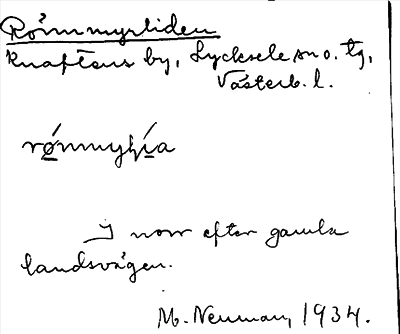 Rönnmyrliden
Knaftens by, Lycksele sn o. tg,
Västerb. l.
I norr efter gamla
landsvägen.
M. Neuman, 1934.